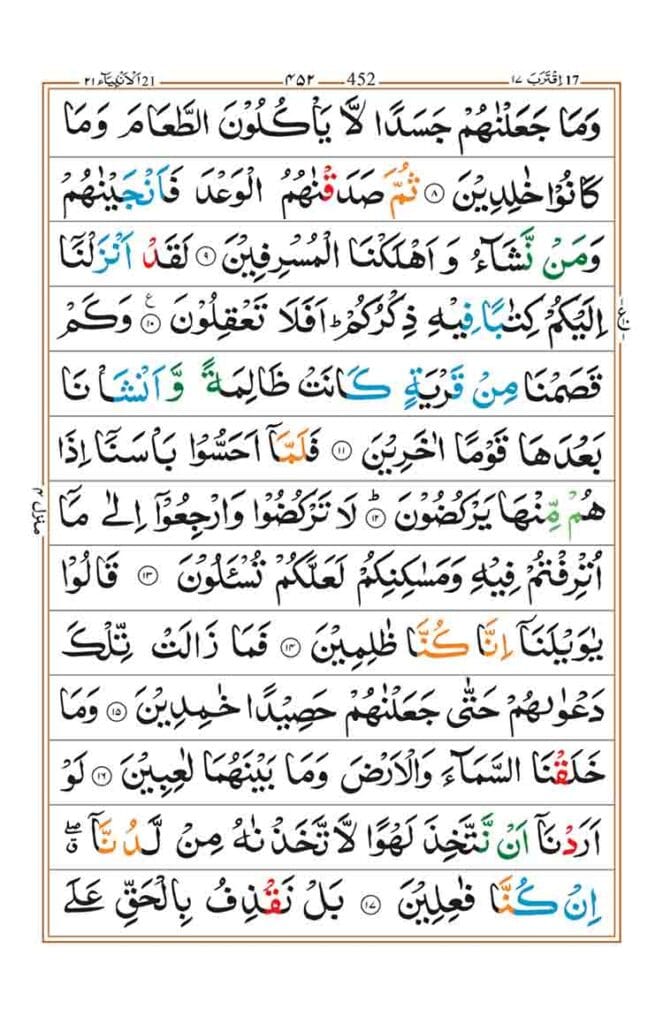 اِقْتَرَبَ ١٧ 17 452 ٤٥٢ الْاَنْۢبِيَآء ٢١ 21
وَمَا جَعَلْنٰهُمْ جَسَدًا لَّا يَاْكُلُوْنَ الطَّعَامَ وَمَا
كَانُوْا خٰلِدِيْنَ ۝٨ ثُمَّ صَدَقْنٰهُمُ الْوَعْدَ فَاَنْجَيْنٰهُمْ
وَمَنْ نَّشَآءُ وَاَهْلَكْنَا الْمُسْرِفِيْنَ ۝٩ لَقَدْ اَنْزَلْنَآ
اِلَيْكُمْ كِتٰبًا فِيْهِ ذِكْرُكُمْ ؕ اَفَلَا تَعْقِلُوْنَ ۝١٠ ع وَكَمْ
قَصَمْنَا مِنْ قَرْيَةٍ كَانَتْ ظَالِمَةً وَّاَنْشَاْنَا
بَعْدَهَا قَوْمًا اٰخَرِيْنَ ۝١١ فَلَمَّآ اَحَسُّوْا بَاْسَنَآ اِذَا
هُمْ مِّنْهَا يَرْكُضُوْنَ ۝١٢ ؕ لَا تَرْكُضُوْا وَارْجِعُوْٓا اِلٰى مَآ
اُتْرِفْتُمْ فِيْهِ وَمَسٰكِنِكُمْ لَعَلَّكُمْ تُسْـَٔلُوْنَ ۝١٣ قَالُوْا
يٰوَيْلَنَآ اِنَّا كُنَّا ظٰلِمِيْنَ ۝١٤ فَمَا زَالَتْ تِّلْكَ
دَعْوٰىهُمْ حَتّٰى جَعَلْنٰهُمْ حَصِيْدًا خٰمِدِيْنَ ۝١٥ وَمَا
خَلَقْنَا السَّمَآءَ وَالْاَرْضَ وَمَا بَيْنَهُمَا لٰعِبِيْنَ ۝١٦ لَوْ
اَرَدْنَآ اَنْ نَّتَّخِذَ لَهْوًا لَّاتَّخَذْنٰهُ مِنْ لَّدُنَّآ ۖۗ
اِنْ كُنَّا فٰعِلِيْنَ ۝١٧ بَلْ نَقْذِفُ بِالْحَقِّ عَلَى
منزل ٤